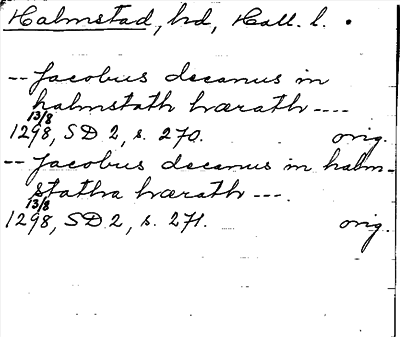 Halmstad, hd, Hall. l.
-- Jacobus decanus in
halmstath hærath ----
13/8
1298, SD 2, s. 270. orig.
-- Jacobus decanus in halm-
statha hærath ---.
13/8
1298, SD 2, s. 271. orig.